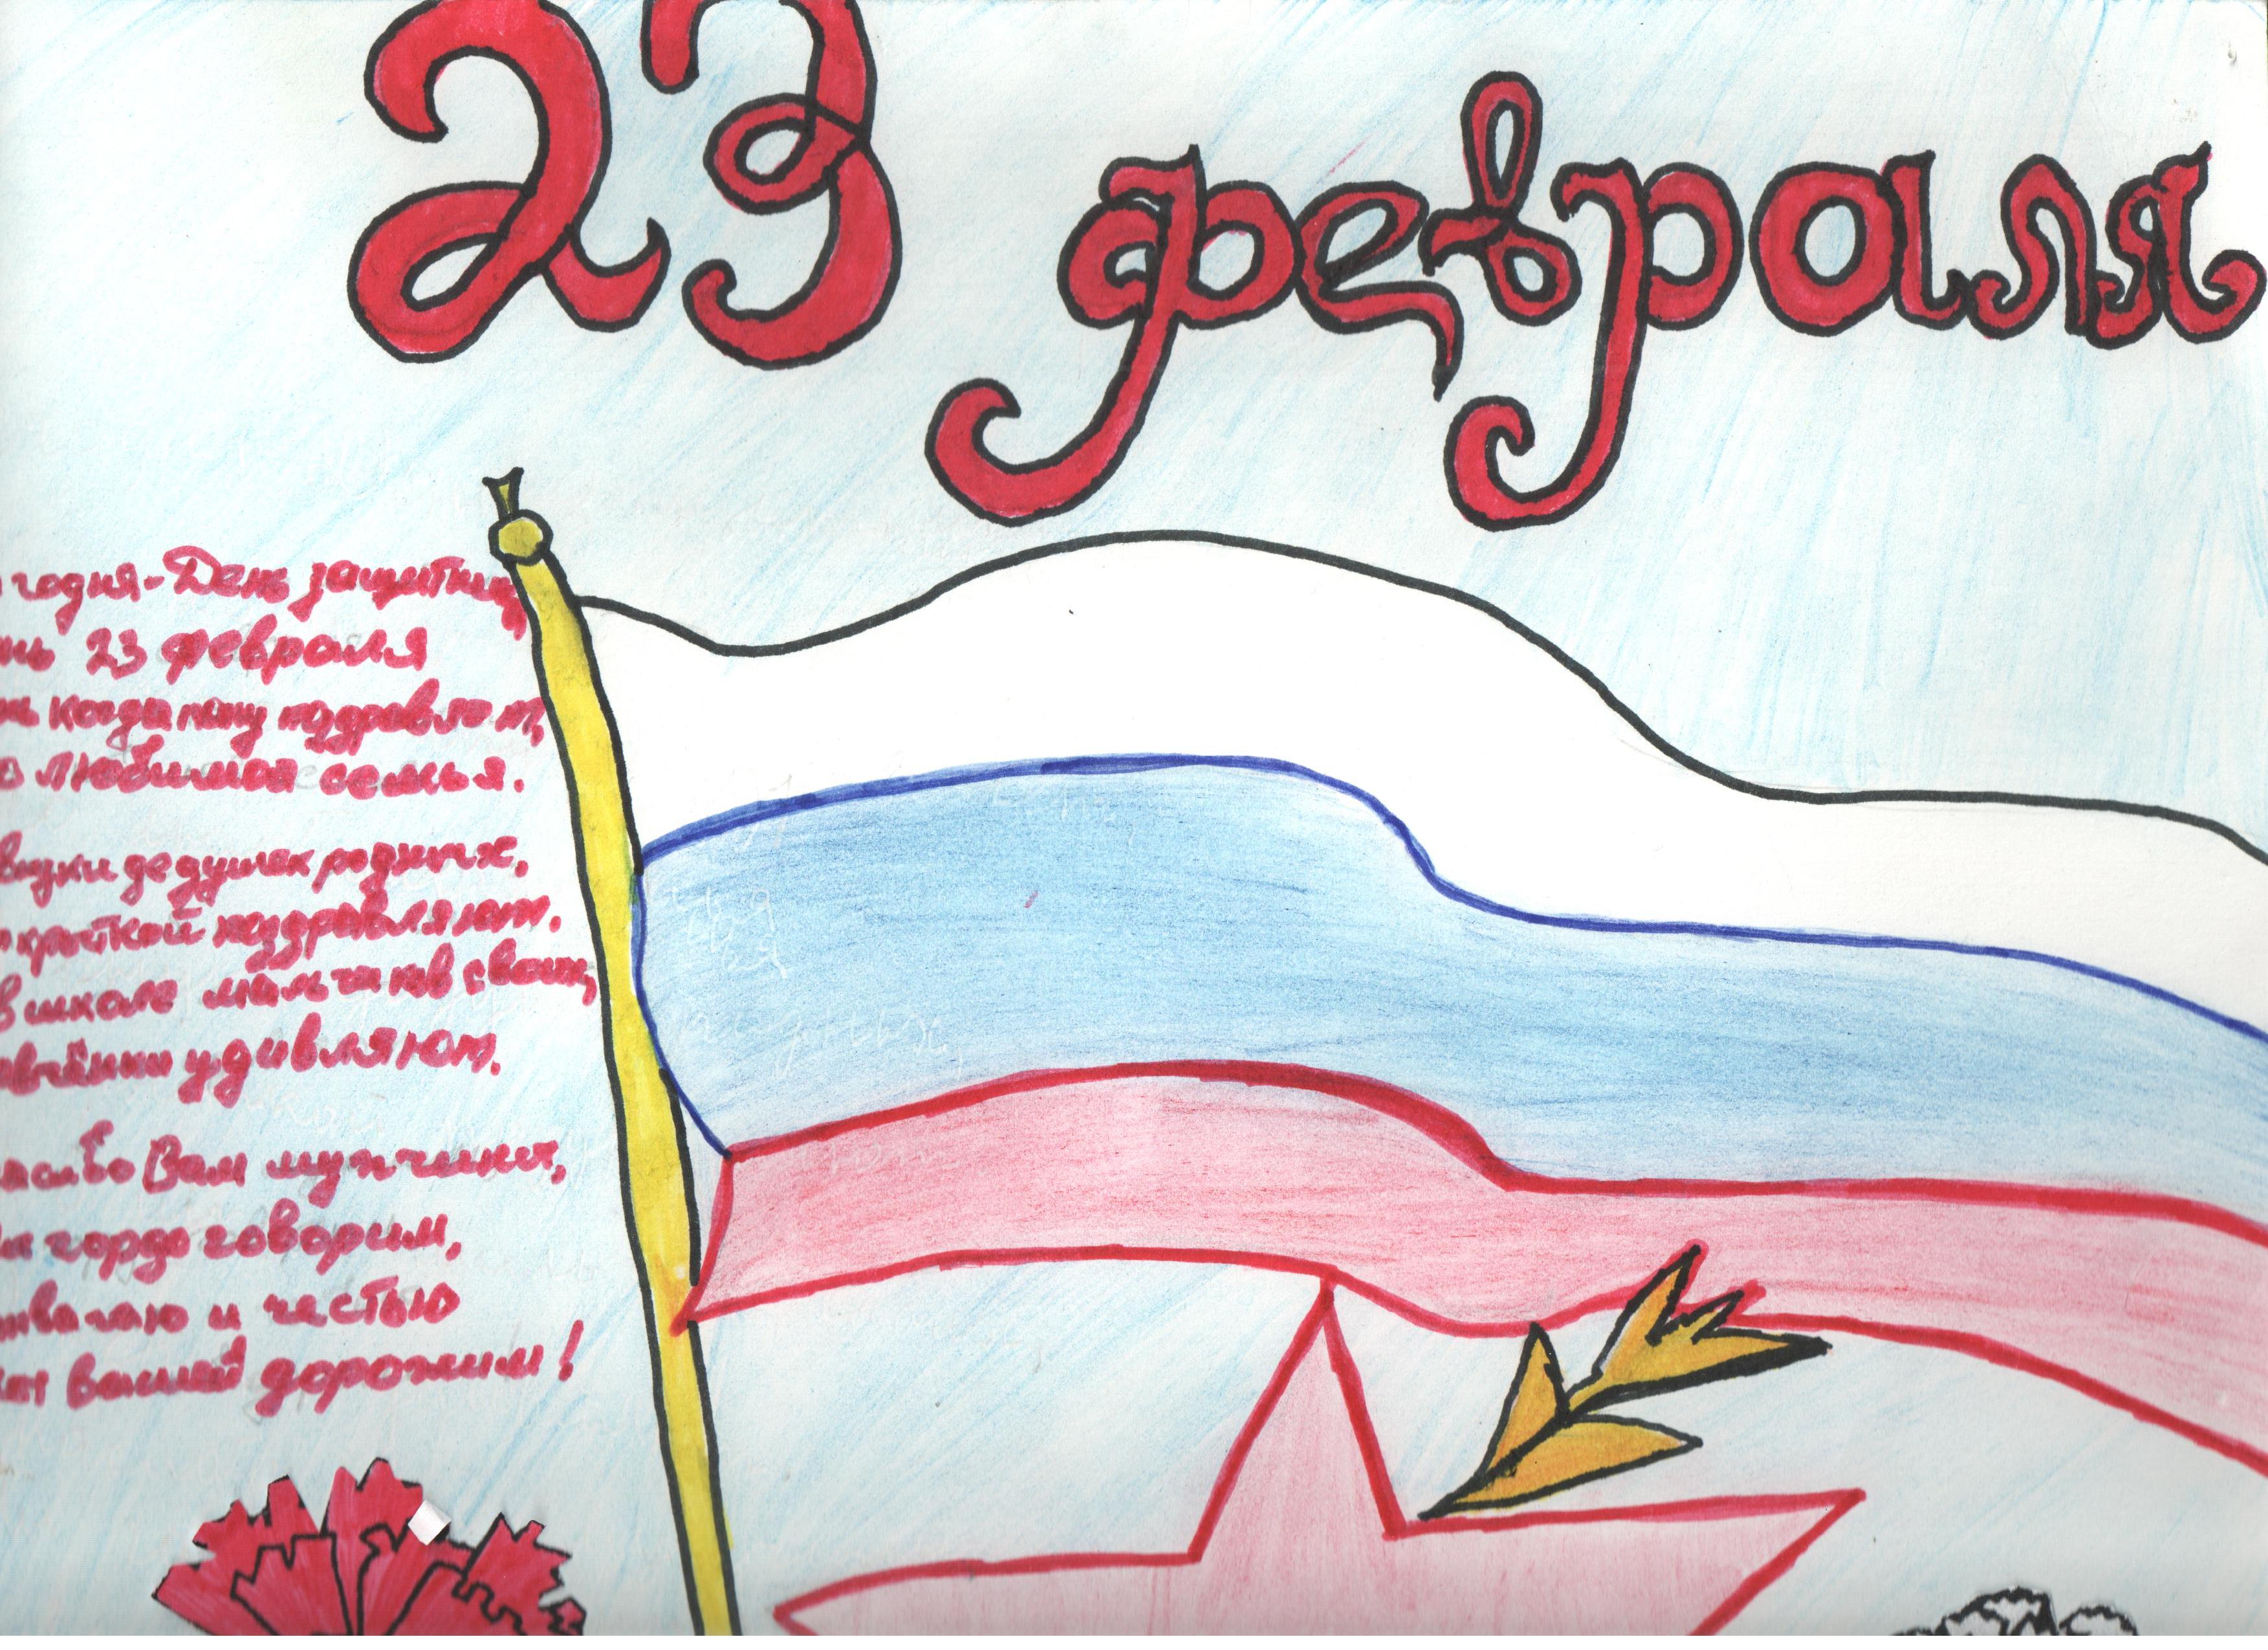 23 февраля
годня - День защитника,
нь 23 февраля
нь когда папу поздравляют,
о любимая семья.
внуки дедушек родных,
открыткой поздравляют.
в школе мальчиков своих,
девчёнки удивляют.
пасибо Вам мужчины,
ы гордо говорим,
отвагаю и честью
ы вашей дорожим!